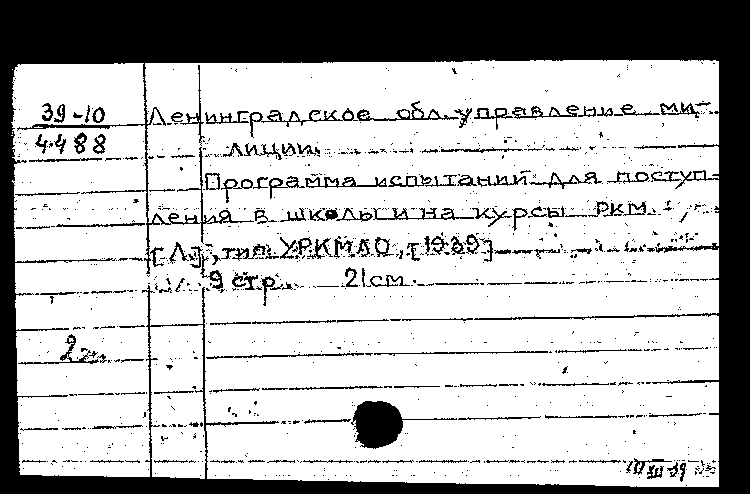 39-10
4488
Ленинградское обл. управление ми-
лиции.
Программа испытаний для поступ-
ления в школы и на курсы РКМ. -
[Л.], тип. УРКМЛО, [1939]
9 стр. 21 см.
2 эк.